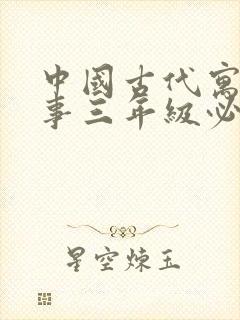 中國古代寓
事三年級必
星空煉玉